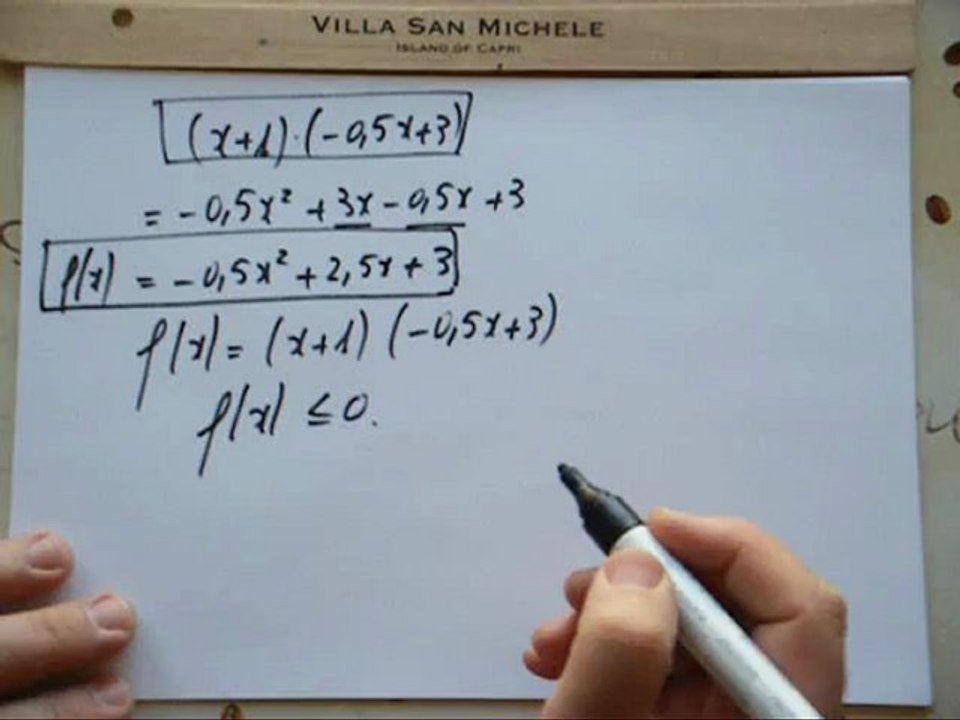 VILLA SAN MICHELE
ISLAND OF CAPRI
(x+1)·(-0,5x+3)
= -0,5x² + 3x - 0,5x + 3
f(x) = -0,5x² + 2,5x + 3
f(x) = (x+1) (-0,5x+3)
f(x) ≤ 0.